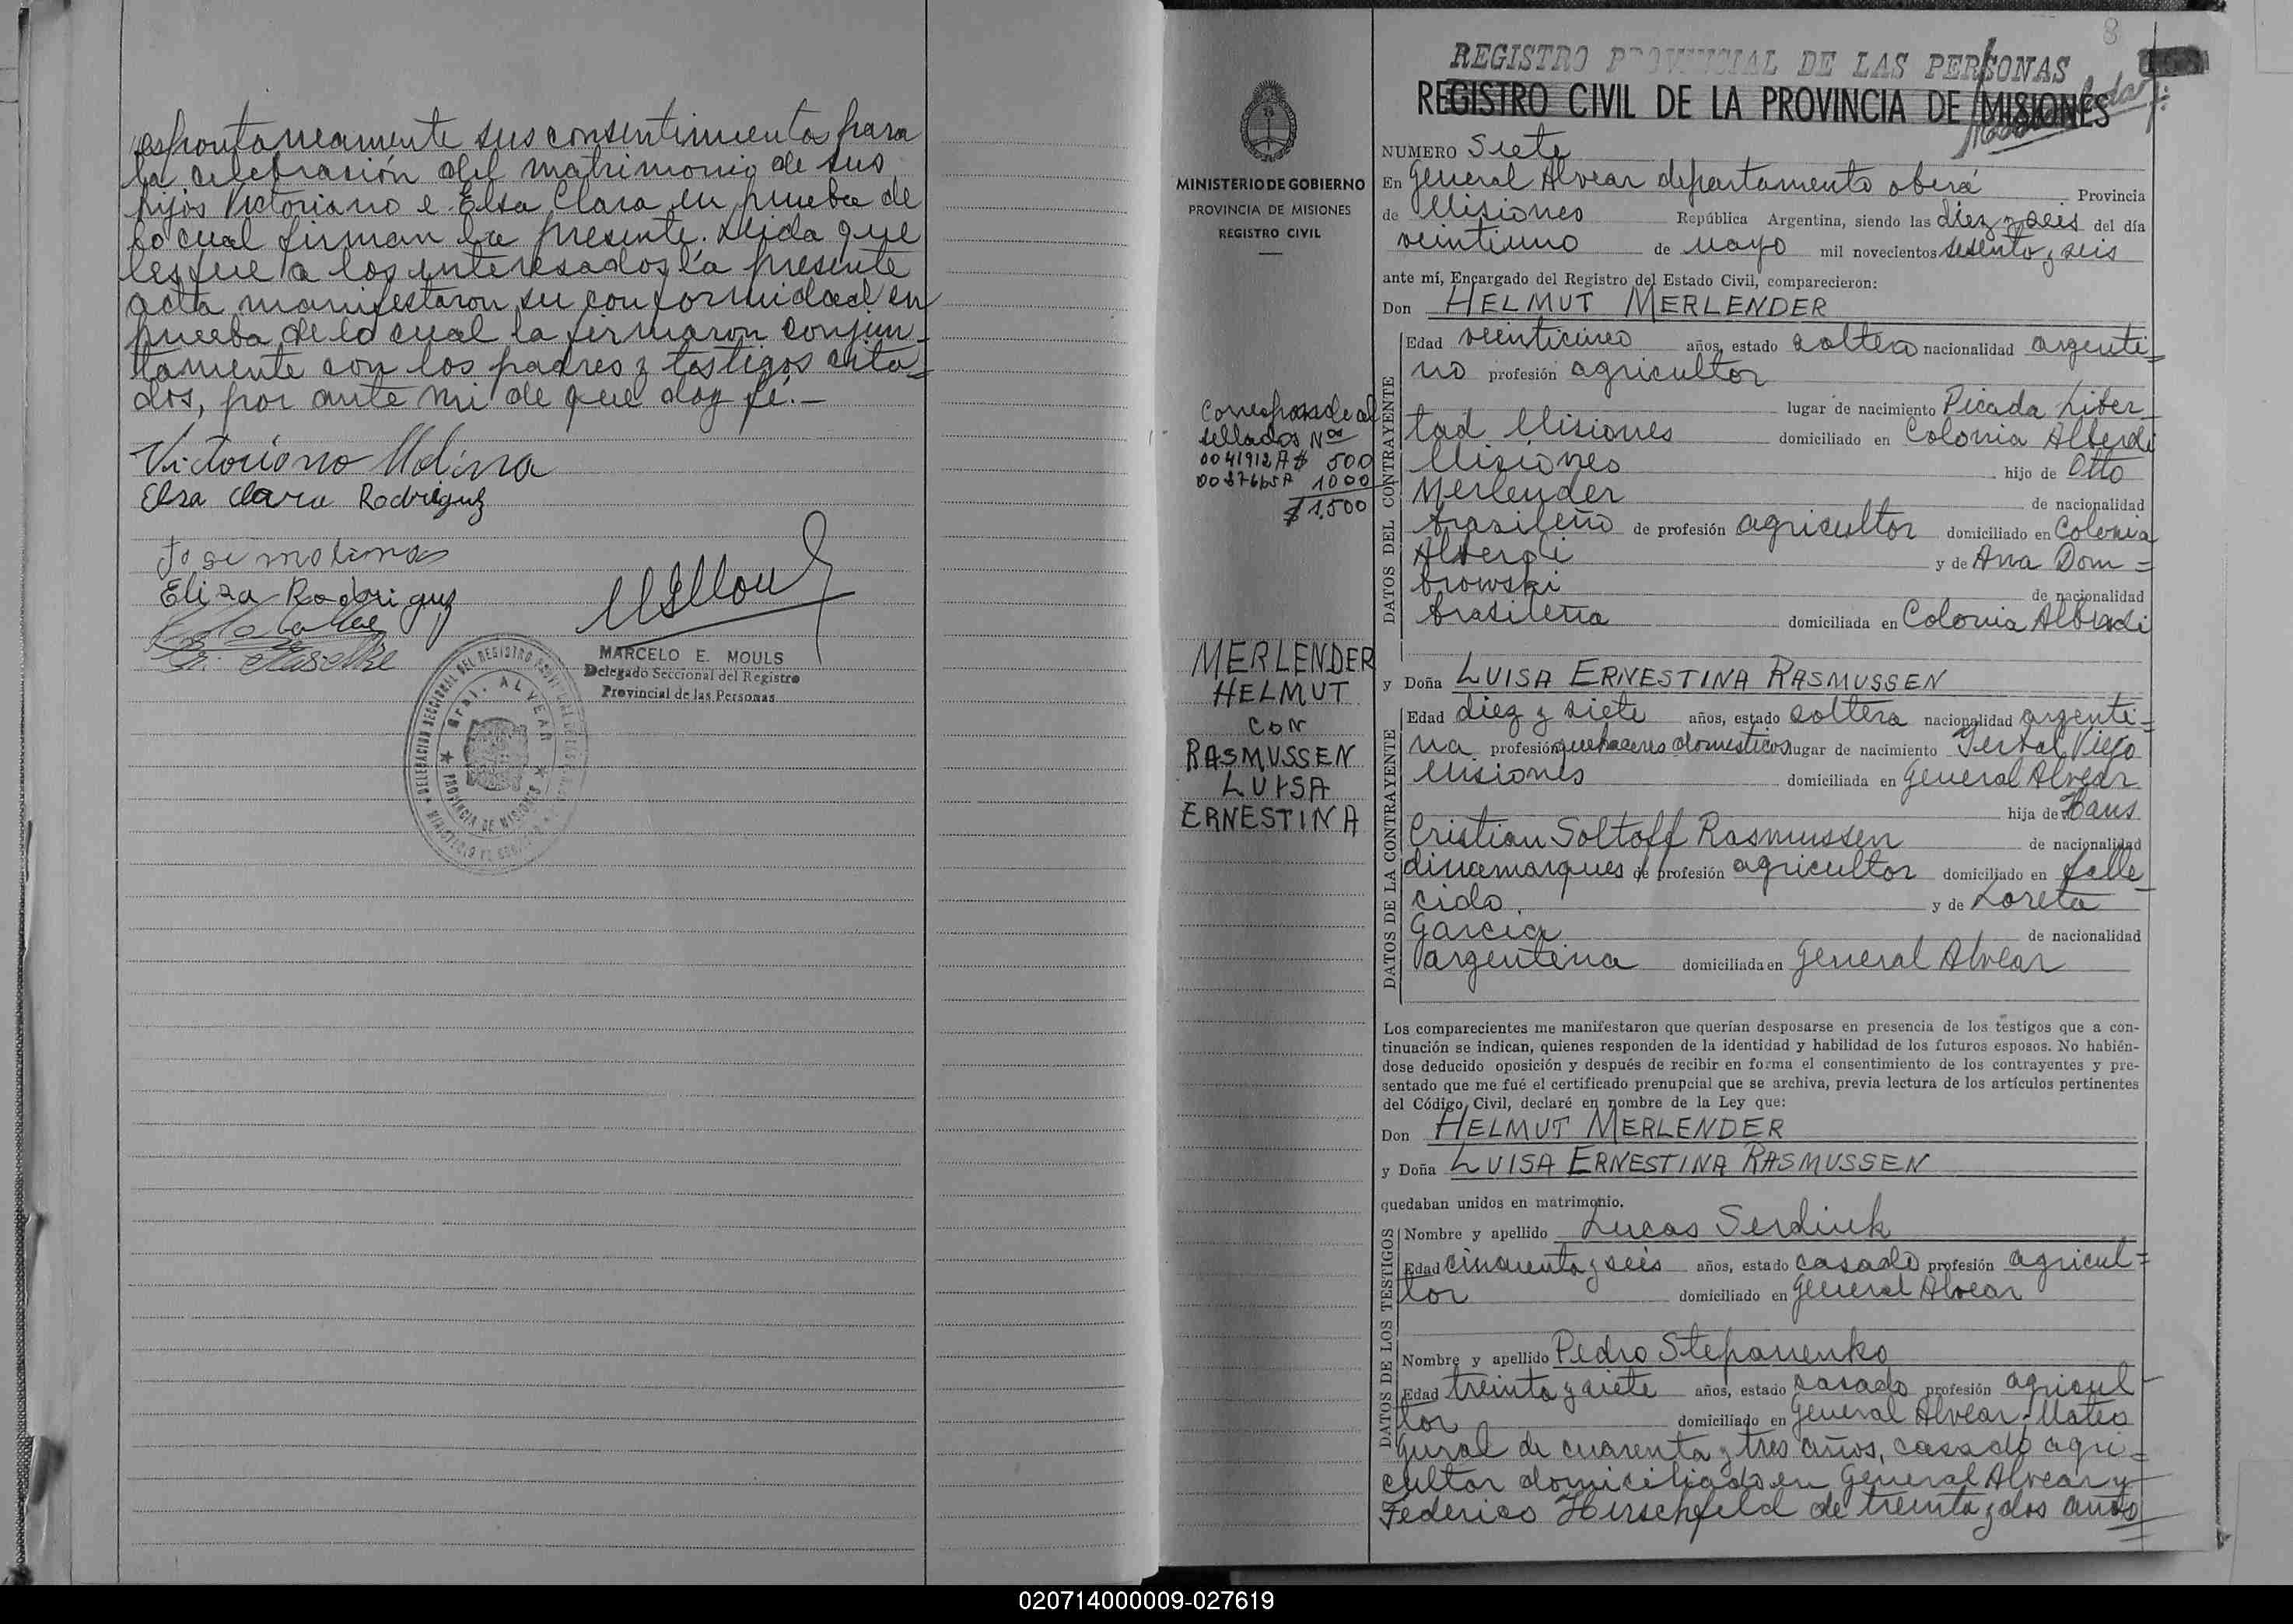 espontaneamente sus consentimiento para
la celebrasión del matrimonio de sus
hijos Victoriano e Elsa Clara en prueba de
lo cual firman la presente. Leida que
les fue a los interesados la presente
acta manifestaron su conformidad en
prueba de lo cual la firmaron conjun-
tamente con los padres y testigos cita=
dos, por ante mi de que doy fé.-
Victoriano Molina
Elsa Clara Rodriguez
Jose molina
Eliza Rodriguez
MARCELO E. MOULS
Delegado Seccional del Registro
Provincial de las Personas
Gral. ALVEAR
PROVINCIA DE MISIONES
8
REGISTRO PROVINCIAL DE LAS PERSONAS
REGISTRO CIVIL DE LA PROVINCIA DE MISIONES
MINISTERIO DE GOBIERNO
PROVINCIA DE MISIONES
REGISTRO CIVIL
Corresponde al
sellados Nos
0041912A $ 500
1000
$ 1.500
MERLENDER
HELMUT
CON
RASMUSSEN
LUISA
ERNESTINA
NUMERO Siete
En General Alvear departamento oberá Provincia
de Misiones República Argentina, siendo las diez y seis del día
veintiuno de mayo mil novecientos sesenta y seis
ante mí, Encargado del Registro del Estado Civil, comparecieron:
Don HELMUT MERLENDER
DATOS DEL CONTRAYENTE
Edad veinticinco años, estado soltero nacionalidad argenti=
no profesión agricultor
lugar de nacimiento Picada Liber_
tad Misiones domiciliado en Colonia Alberdi
Misiones hijo de Otto
Merlender de nacionalidad
brasileño de profesión agricultor domiciliado en Colonia
Alberdi y de Ana Dom=
browski de nacionalidad
brasileña domiciliada en Colonia Alberdi
y Doña LUISA ERNESTINA RASMUSSEN
DATOS DE LA CONTRAYENTE
Edad diez y siete años, estado soltera nacionalidad argenti=
na profesión quehaceres domesticos lugar de nacimiento Yerbal Viejo
Misiones domiciliada en General Alvear
hija de Hans
Cristian Soltoff Rasmussen de nacionalidad
dinamarques de profesión agricultor domiciliado en falle_
cido. y de Loreta
Garcia de nacionalidad
argentina domiciliada en General Alvear
Los comparecientes me manifestaron que querían desposarse en presencia de los testigos que a con-
tinuación se indican, quienes responden de la identidad y habilidad de los futuros esposos. No habién-
dose deducido oposición y después de recibir en forma el consentimiento de los contrayentes y pre-
sentado que me fué el certificado prenupcial que se archiva, previa lectura de los artículos pertinentes
del Código Civil, declaré en nombre de la Ley que:
Don HELMUT MERLENDER
y Doña LUISA ERNESTINA RASMUSSEN
quedaban unidos en matrimonio.
DATOS DE LOS TESTIGOS
Nombre y apellido Lucas Serdiuk
Edad cincuenta y seis años, estado casado profesión agricul=
tor domiciliado en General Alvear
Nombre y apellido Pedro Stepanenko
Edad treinta y siete años, estado casado profesión agricul-
tor domiciliado en General Alvear. Mateo
Gural de cuarenta y tres años, casado agri=
cultor domiciliado en General Alvear y
Federico Hirschfeld de treinta y dos años
020714000009-027619